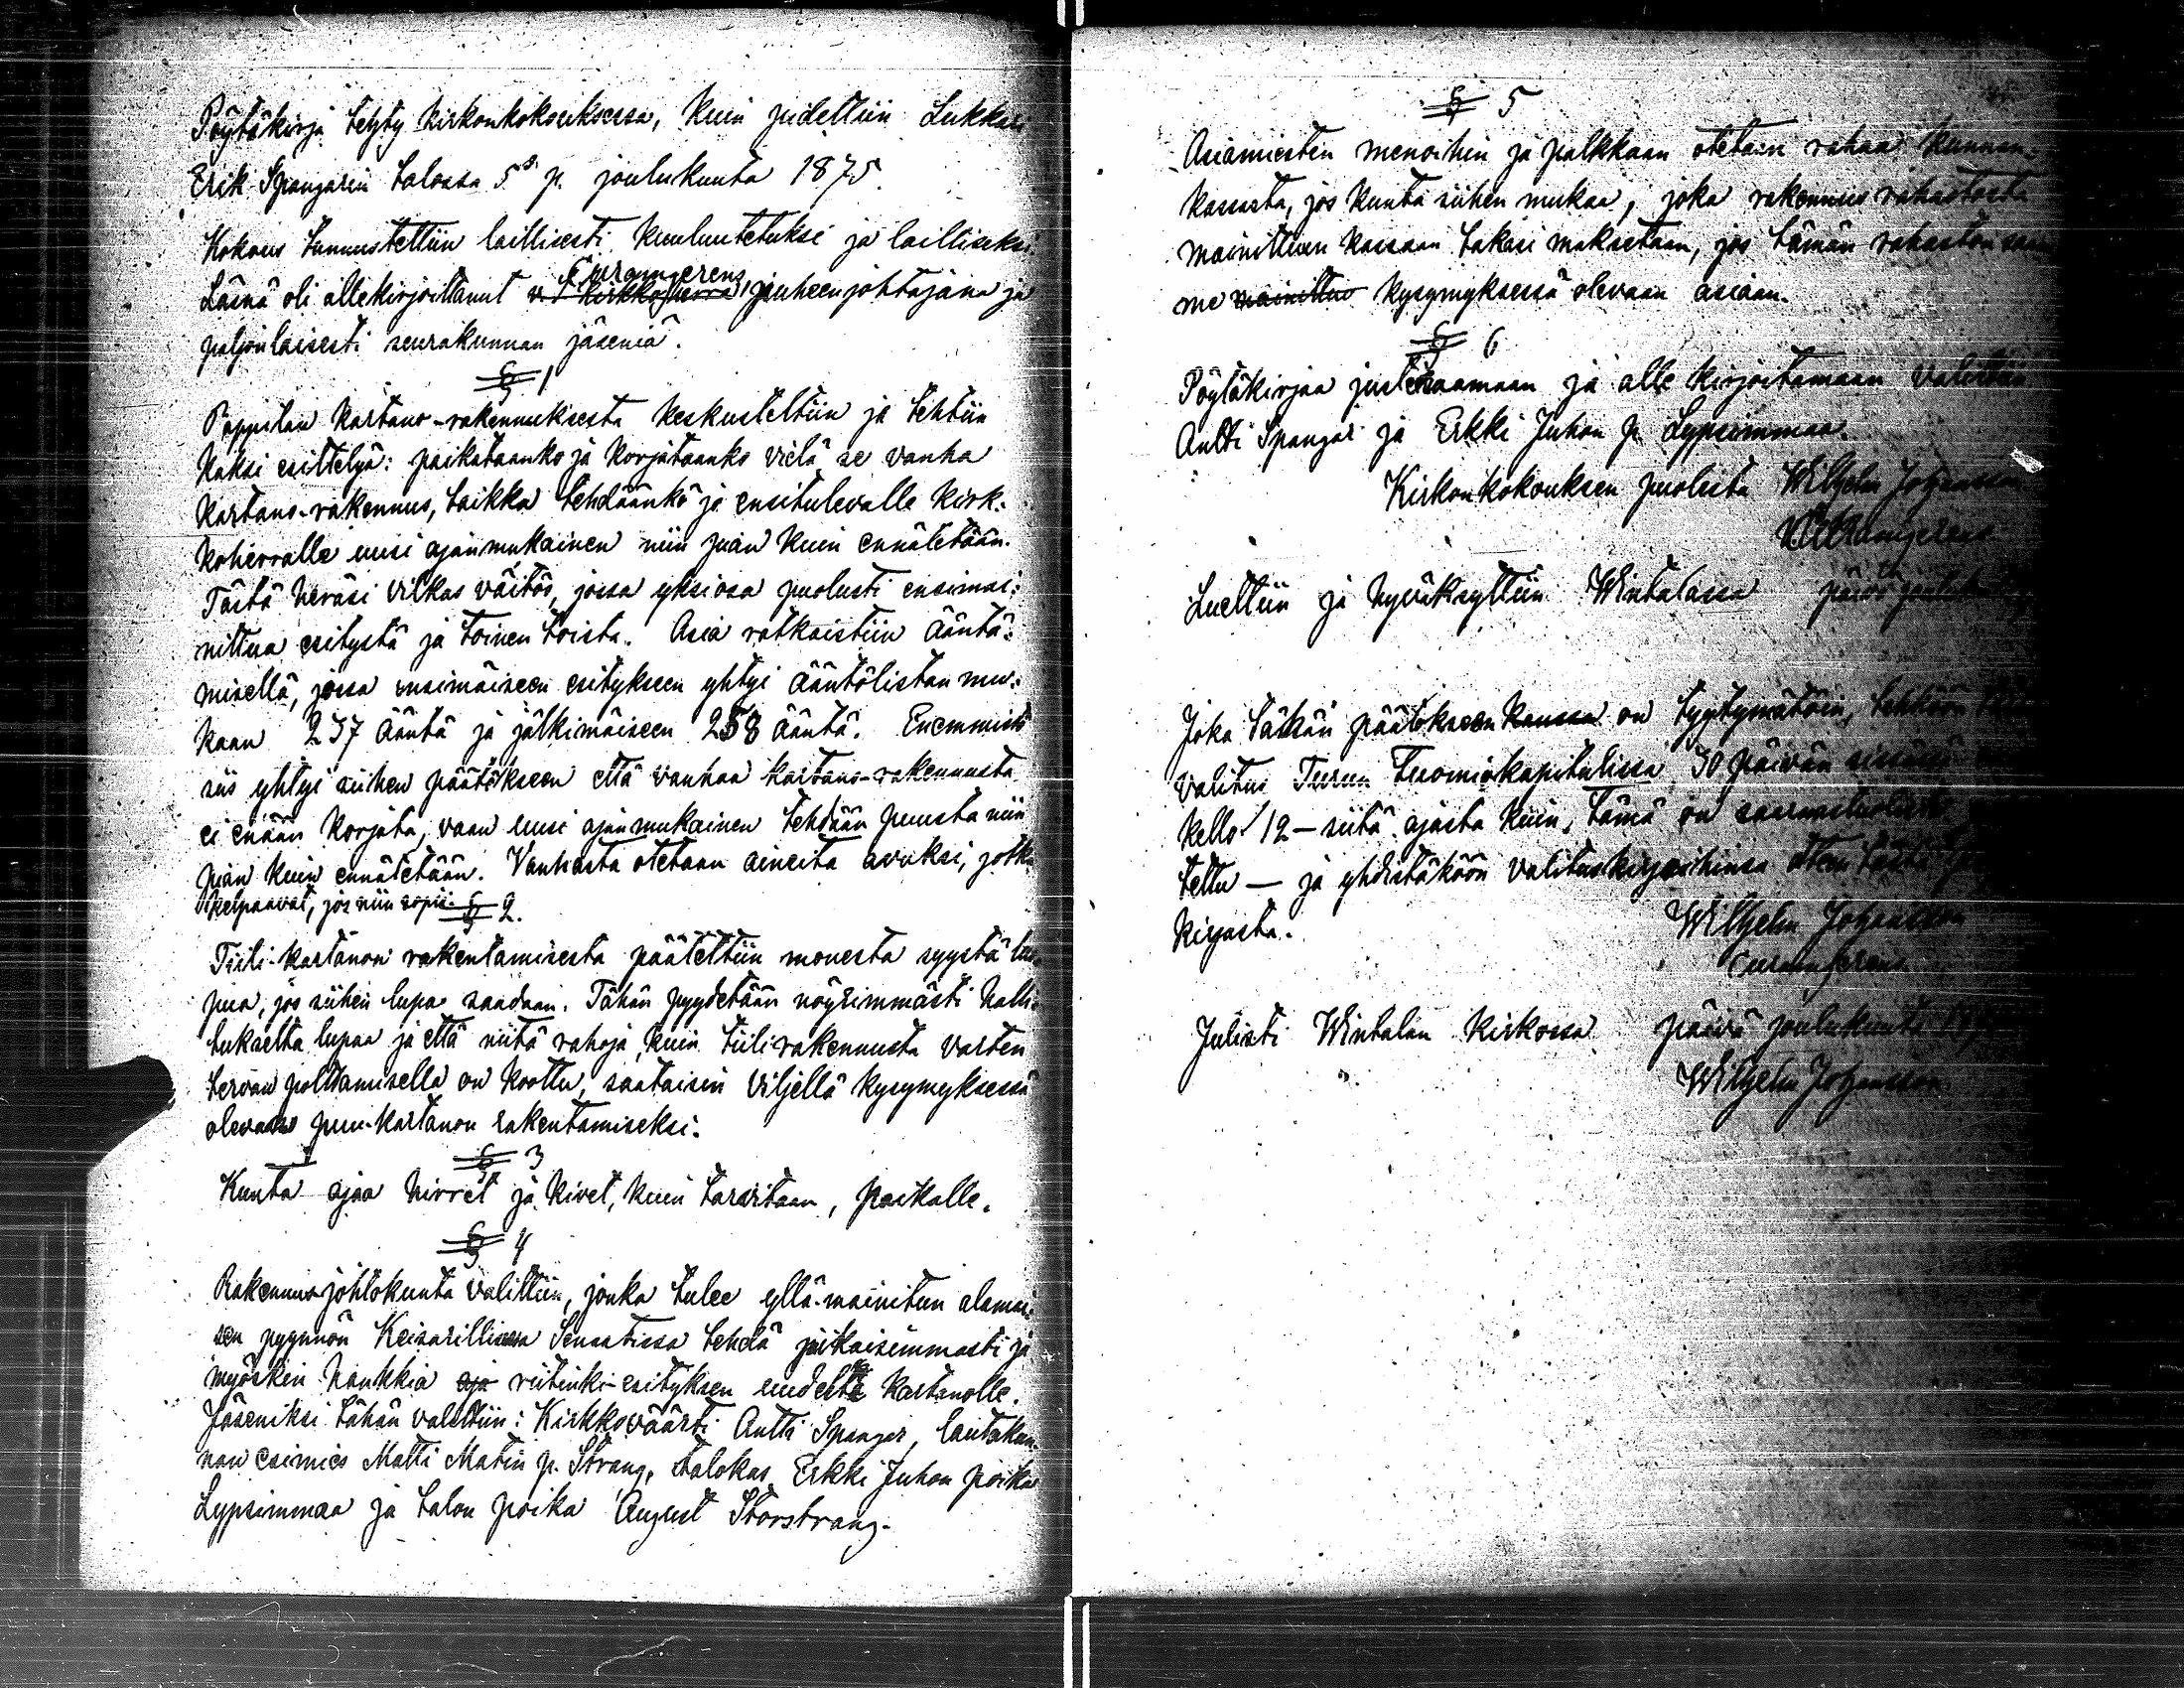 Pöytäkirja tehty kirkonkokouksessa, kuin pidettiin Lukkari
Erik Spangarin talossa 5s p. joulukuuta 1875.
Kokous tunnustettiin laillisesti kuuluutetuksi ja lailliseksi.
Läsnä oli allekirjoittanut v. T. kirkkoherra Curamgerens, puheenjohtajana ja
paljonlaisesti seurakunnan jäseniä.
§ 1
Pappilan kartano-rakennuksesta keskusteltiin ja tehtiin
kaksi esittelyä: paikataanko ja korjataanko vielä se vanha
kartano-rakennus, taikka tehdäänkö ja ensitulevalle kirk-
koherralle uusi ajanmukainen niin pian kuin ennätetään.
Tästä heräsi vilkas väitös, jossa yksi osa puolusti ensimai-
nittua esitystä ja toinen toista. Asia ratkaistiin ääntä-
misellä, jossa ensimäiseen esitykseen yhtyi ääntölistan mu-
kaan 237 ääntä ja jälkimäiseen 258 ääntä. Enemmistö
siis yhtyi siihen päätökseen että vanhaa kartano-rakennusta
ei enään korjata, vaan uusi ajanmukainen tehdään puusta niin
pian kuin ennätetään. Vanhasta otetaan aineita avuksi, jotka
kelpaavat, jos niin sopii.
§ 2.
Tiili-kartanon rakentamisesta päätettiin monesta syystä luo-
pua, jos siihen lupa saadaan. Tähän pyydetään nöyrimmästi halli-
tukselta lupaa ja että niitä rahoja, kuin tiilirakennusta varten
tervan polttamisella on koottu, saataisiin viljellä kysymyksessä
olevan puu-kartanon rakentamiseksi.
§ 3
Kunta ajaa hirret ja kivet, kuin tarvitaan, paikalle.
§ 4
Rakennusjohtokunta valittiin, jonka tulee yllä-mainitun alamai-
sen pyynnön Keisarillisessa Senaatissa tehdä pikaisimmasti ja
myöskin hankkia aja riitinki-esityksen uudelle kartanolle.
Jäseniksi tähän valittiin: Kirkkoväärti Antti Spangar, lautakun-
nan esimies Matti Matin p. Strang, talokas Erkki Juhon poika
Lypsinmaa ja talon poika August Storstrang.
§ 5
Asiamiesten menoihin ja palkkaan otetaan rahaa kunnan-
kassasta, jos kunta siihen mukaa, joka rakennus rahastosta
mainittuun kassaan takasi maksetaan, jos tämän rahaston saam-
me mainittuu kysymyksessä olevaan asiaan.
§ 6
Pöytäkirjaa justeeraamaan ja alle kirjoitamaan valittiin
Antti Spangar ja Erkki Juhon p. Lypsinmaa.
Kirkonkokouksen puolesta Wilhelm Johansson
v. Curamgerens
Luettiin ja hyväksyttiin Wintalassa päivä
Joka tähän päätökseen kanssa on tyytymätöin, tehköön
valitus Turun Tuomiokapitulissa 30 päivän sisässä
kello 12 — siitä ajasta kuin tämä on
tettu — ja yhdistäköön valituskirjoihinsa otteen tästä
kirjasta.
Wilhelm Johansson
Curamgerens.
Julisti Wintalan kirkossa päivä joulukuuta
Wilhelm Johansson